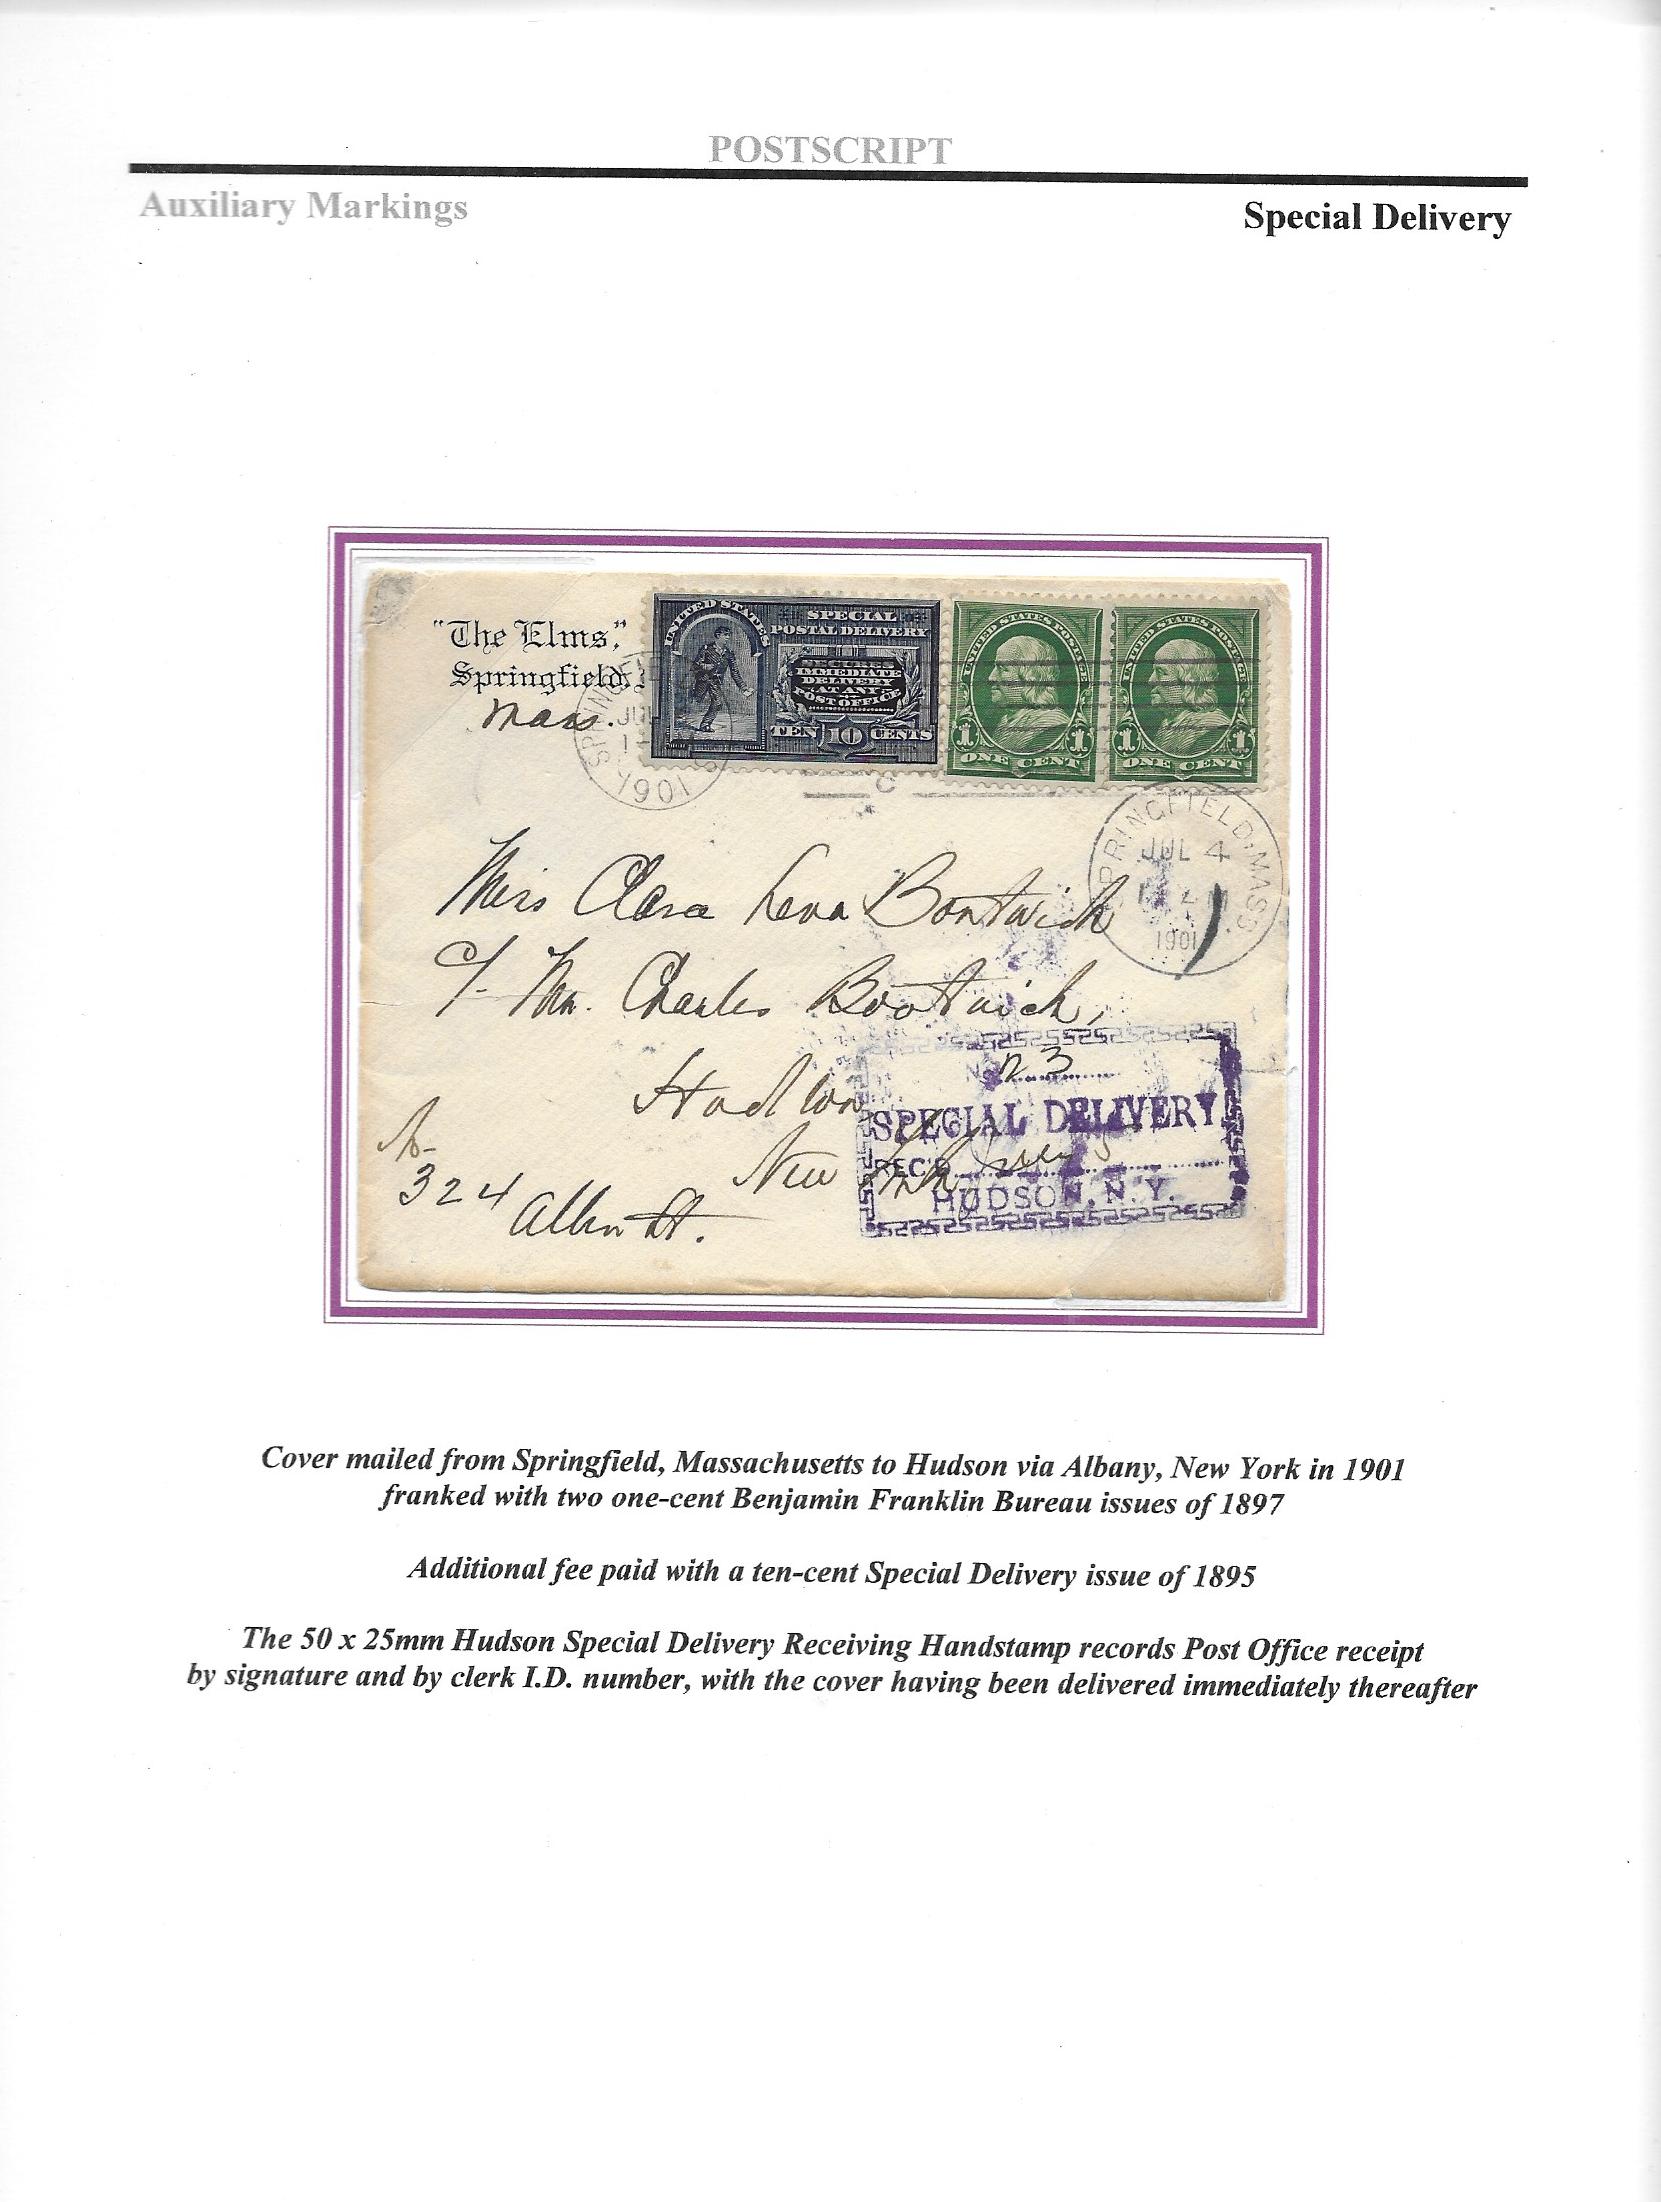 POSTSCRIPT
Auxiliary Markings
Special Delivery
"The Elms,"
Springfield,
Mass.
SPRINGFIELD
JUL
1901
UNITED STATES
SPECIAL
POSTAL DELIVERY
SECURES
IMMEDIATE
DELIVERY
AT ANY
POST OFFICE
TEN 10 CENTS
UNITED STATES POSTAGE
1 1
ONE CENT
UNITED STATES POSTAGE
1 1
ONE CENT
SPRINGFIELD, MASS.
JUL 4
1901
Miss Clara Bostwick
c/- Mr. Charles Bostwick,
Hudson
New York
324
Allen St.
No. 23
SPECIAL DELIVERY
REC'D
HUDSON, N. Y.
Cover mailed from Springfield, Massachusetts to Hudson via Albany, New York in 1901
franked with two one-cent Benjamin Franklin Bureau issues of 1897
Additional fee paid with a ten-cent Special Delivery issue of 1895
The 50 x 25mm Hudson Special Delivery Receiving Handstamp records Post Office receipt
by signature and by clerk I.D. number, with the cover having been delivered immediately thereafter